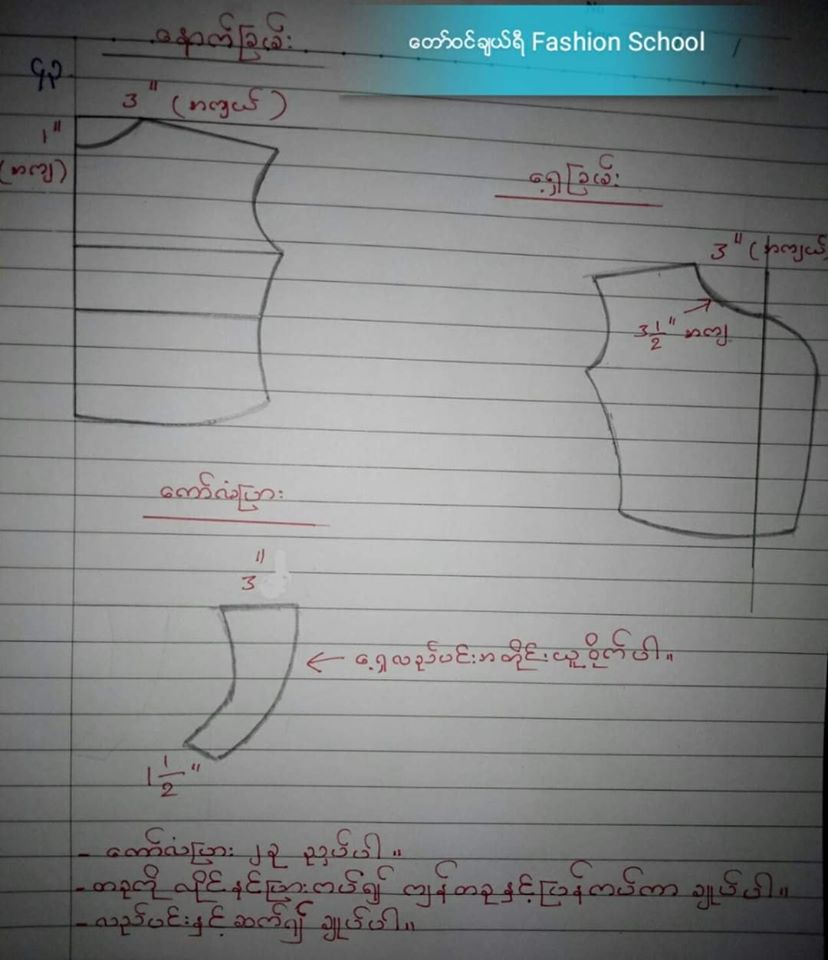 တော်ဝင်ချယ်ရီ Fashion School
နောက်ခြမ်း
၄၃
3" (အကျယ်)
1"
(အကျ)
ရှေ့ခြမ်း
3" (အကျယ်
3 1/2" အကျ
ကော်လံပြား
3"
← ရှေ့လည်ပင်းအတိုင်းယူဝိုက်ပါ။
1 1/2"
- ကော်လံပြား ၂ခု ညှပ်ပါ။
- တခုကို လိုင်နင်းပြားကပ်၍ ကျန်တခုနှင့်ပြန်ကပ်ကာ ချုပ်ပါ။
- လည်ပင်းနှင့်ဆက်၍ ချုပ်ပါ။